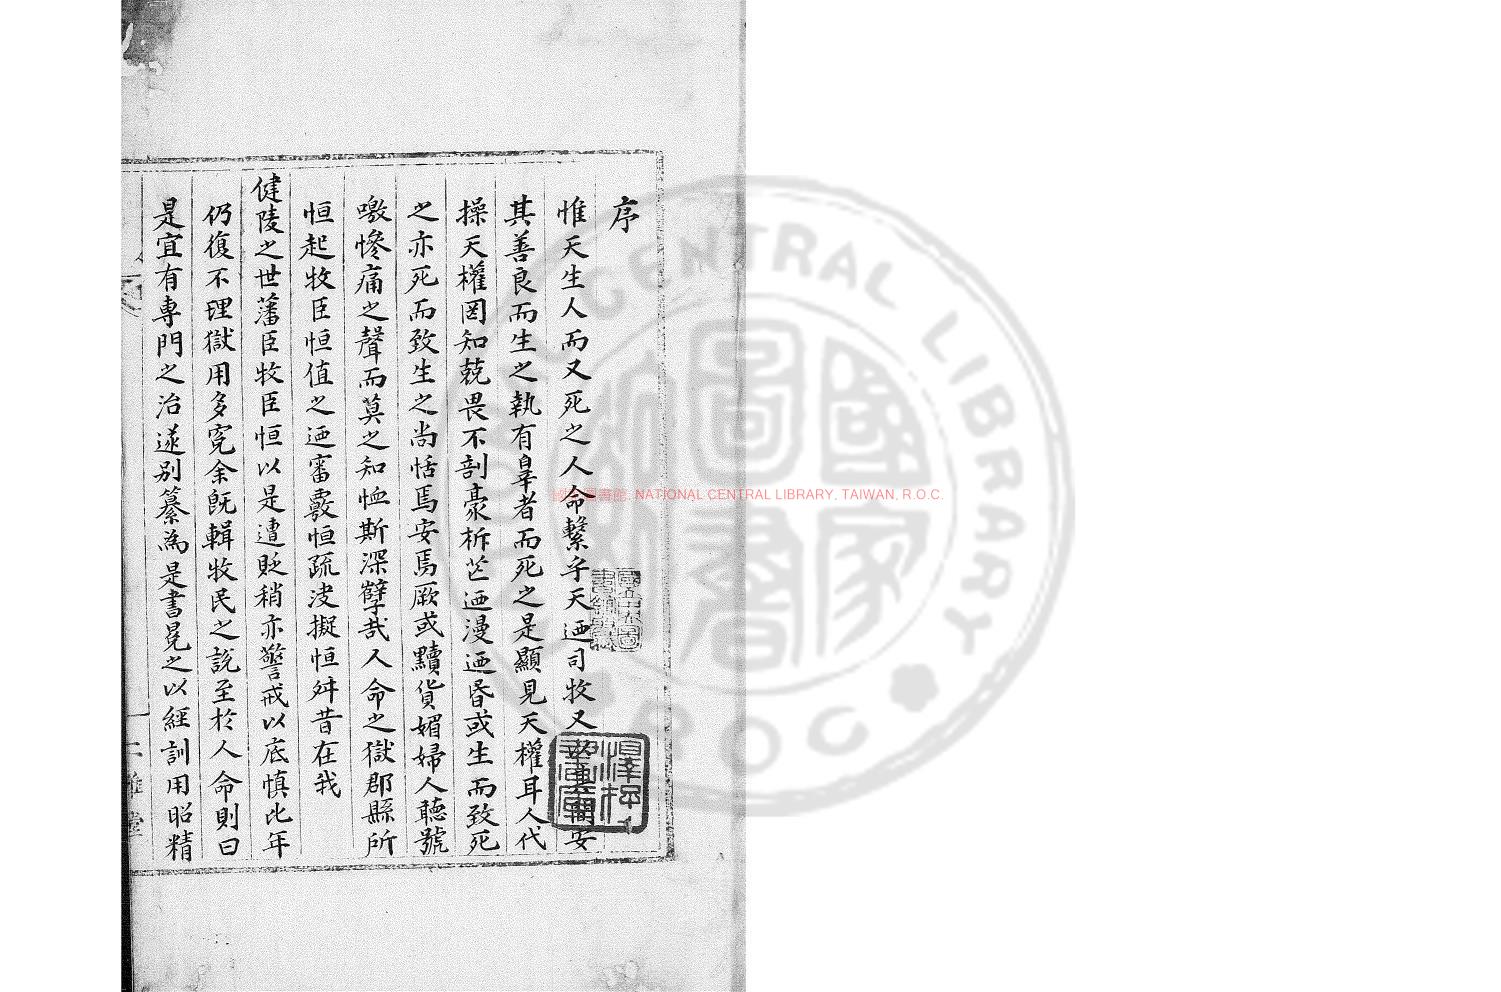 序
惟天生人而又死之人命繫乎天迺司牧又以其間安
其善良而生之執有辠者而死之是顯見天權耳人代
操天權罔知兢畏不剖豪析芒迺漫迺昏或生而致死
之亦死而致生之尚恬焉安焉厥或黷貨媚婦人聽號
噭慘痛之聲而莫之知恤斯深孼哉人命之獄郡縣所
恒起牧臣恒值之迺審覈恒疏決擬恒舛昔在我
健陵之世藩臣牧臣恒以是遭貶稍亦警戒以底慎比年
仍復不理獄用多寃余旣輯牧民之說至於人命則曰
是宜有專門之治遂別纂為是書冕之以經訓用昭精
國立中央圖
國家圖書館, NATIONAL CENTRAL LIBRARY, TAIWAN, R.O.C.
NATIONAL CENTRAL LIBRARY
ROC
國家圖書館